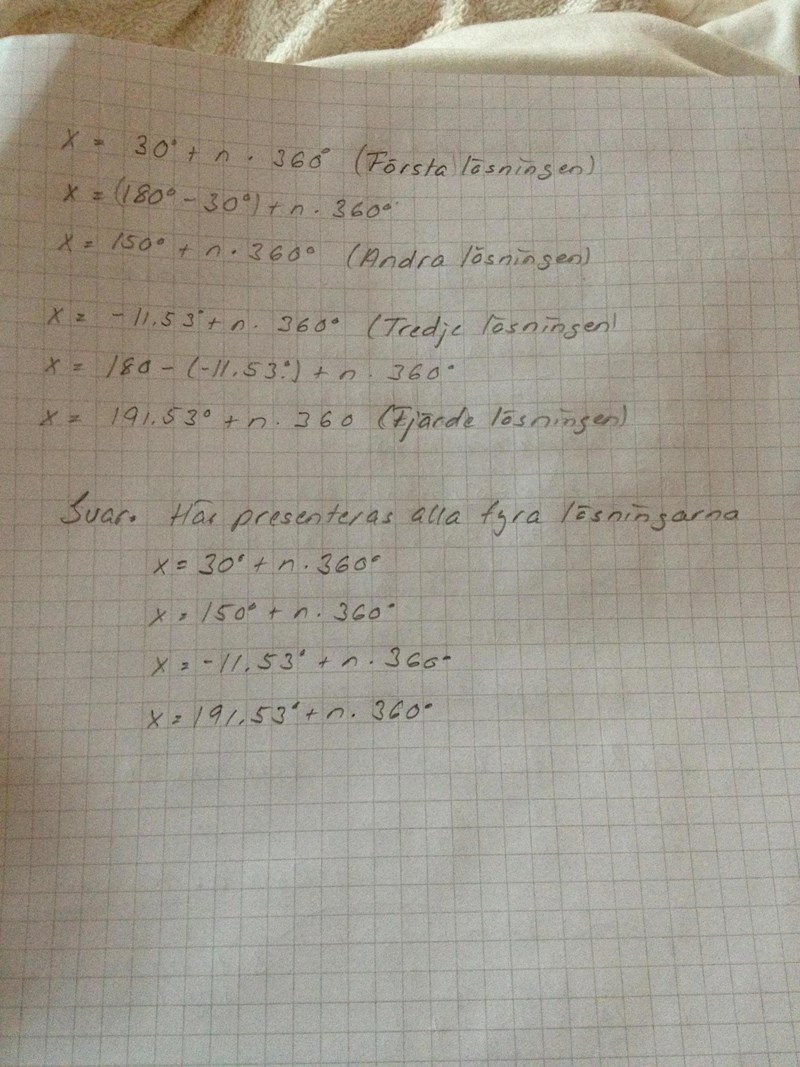 x = 30° + n · 360° (Första lösningen)
x = (180° - 30°) + n · 360°
x = 150° + n · 360° (Andra lösningen)
x = -11.53° + n · 360° (Tredje lösningen)
x = 180 - (-11.53°) + n · 360°
x = 191.53° + n · 360 (Fjärde lösningen)
Svar. Här presenteras alla fyra lösningarna
x = 30° + n · 360°
x = 150° + n · 360°
x = -11.53° + n · 360°
x = 191.53° + n · 360°